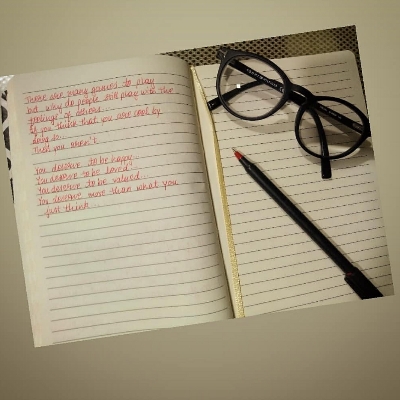 There are many games to play
but why do people still play with the
feelings of others.
If you think that you are cool by
doing so.
Then you aren't.
You deserve to be happy.
You deserve to be loved.
You deserve to be valued.
You deserve more than what you
just think...